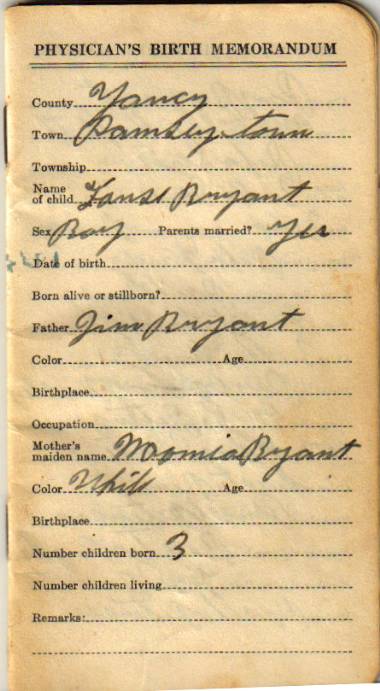 PHYSICIAN'S BIRTH MEMORANDUM
County Yancy
Town Ramsey town
Township
Name
of child Bryant
Sex Boy Parents married? Yes
Date of birth
Born alive or stillborn?
Father Jim Bryant
Color Age
Birthplace
Occupation
Mother's
maiden name Bryant
Color White Age
Birthplace
Number children born 3
Number children living
Remarks: